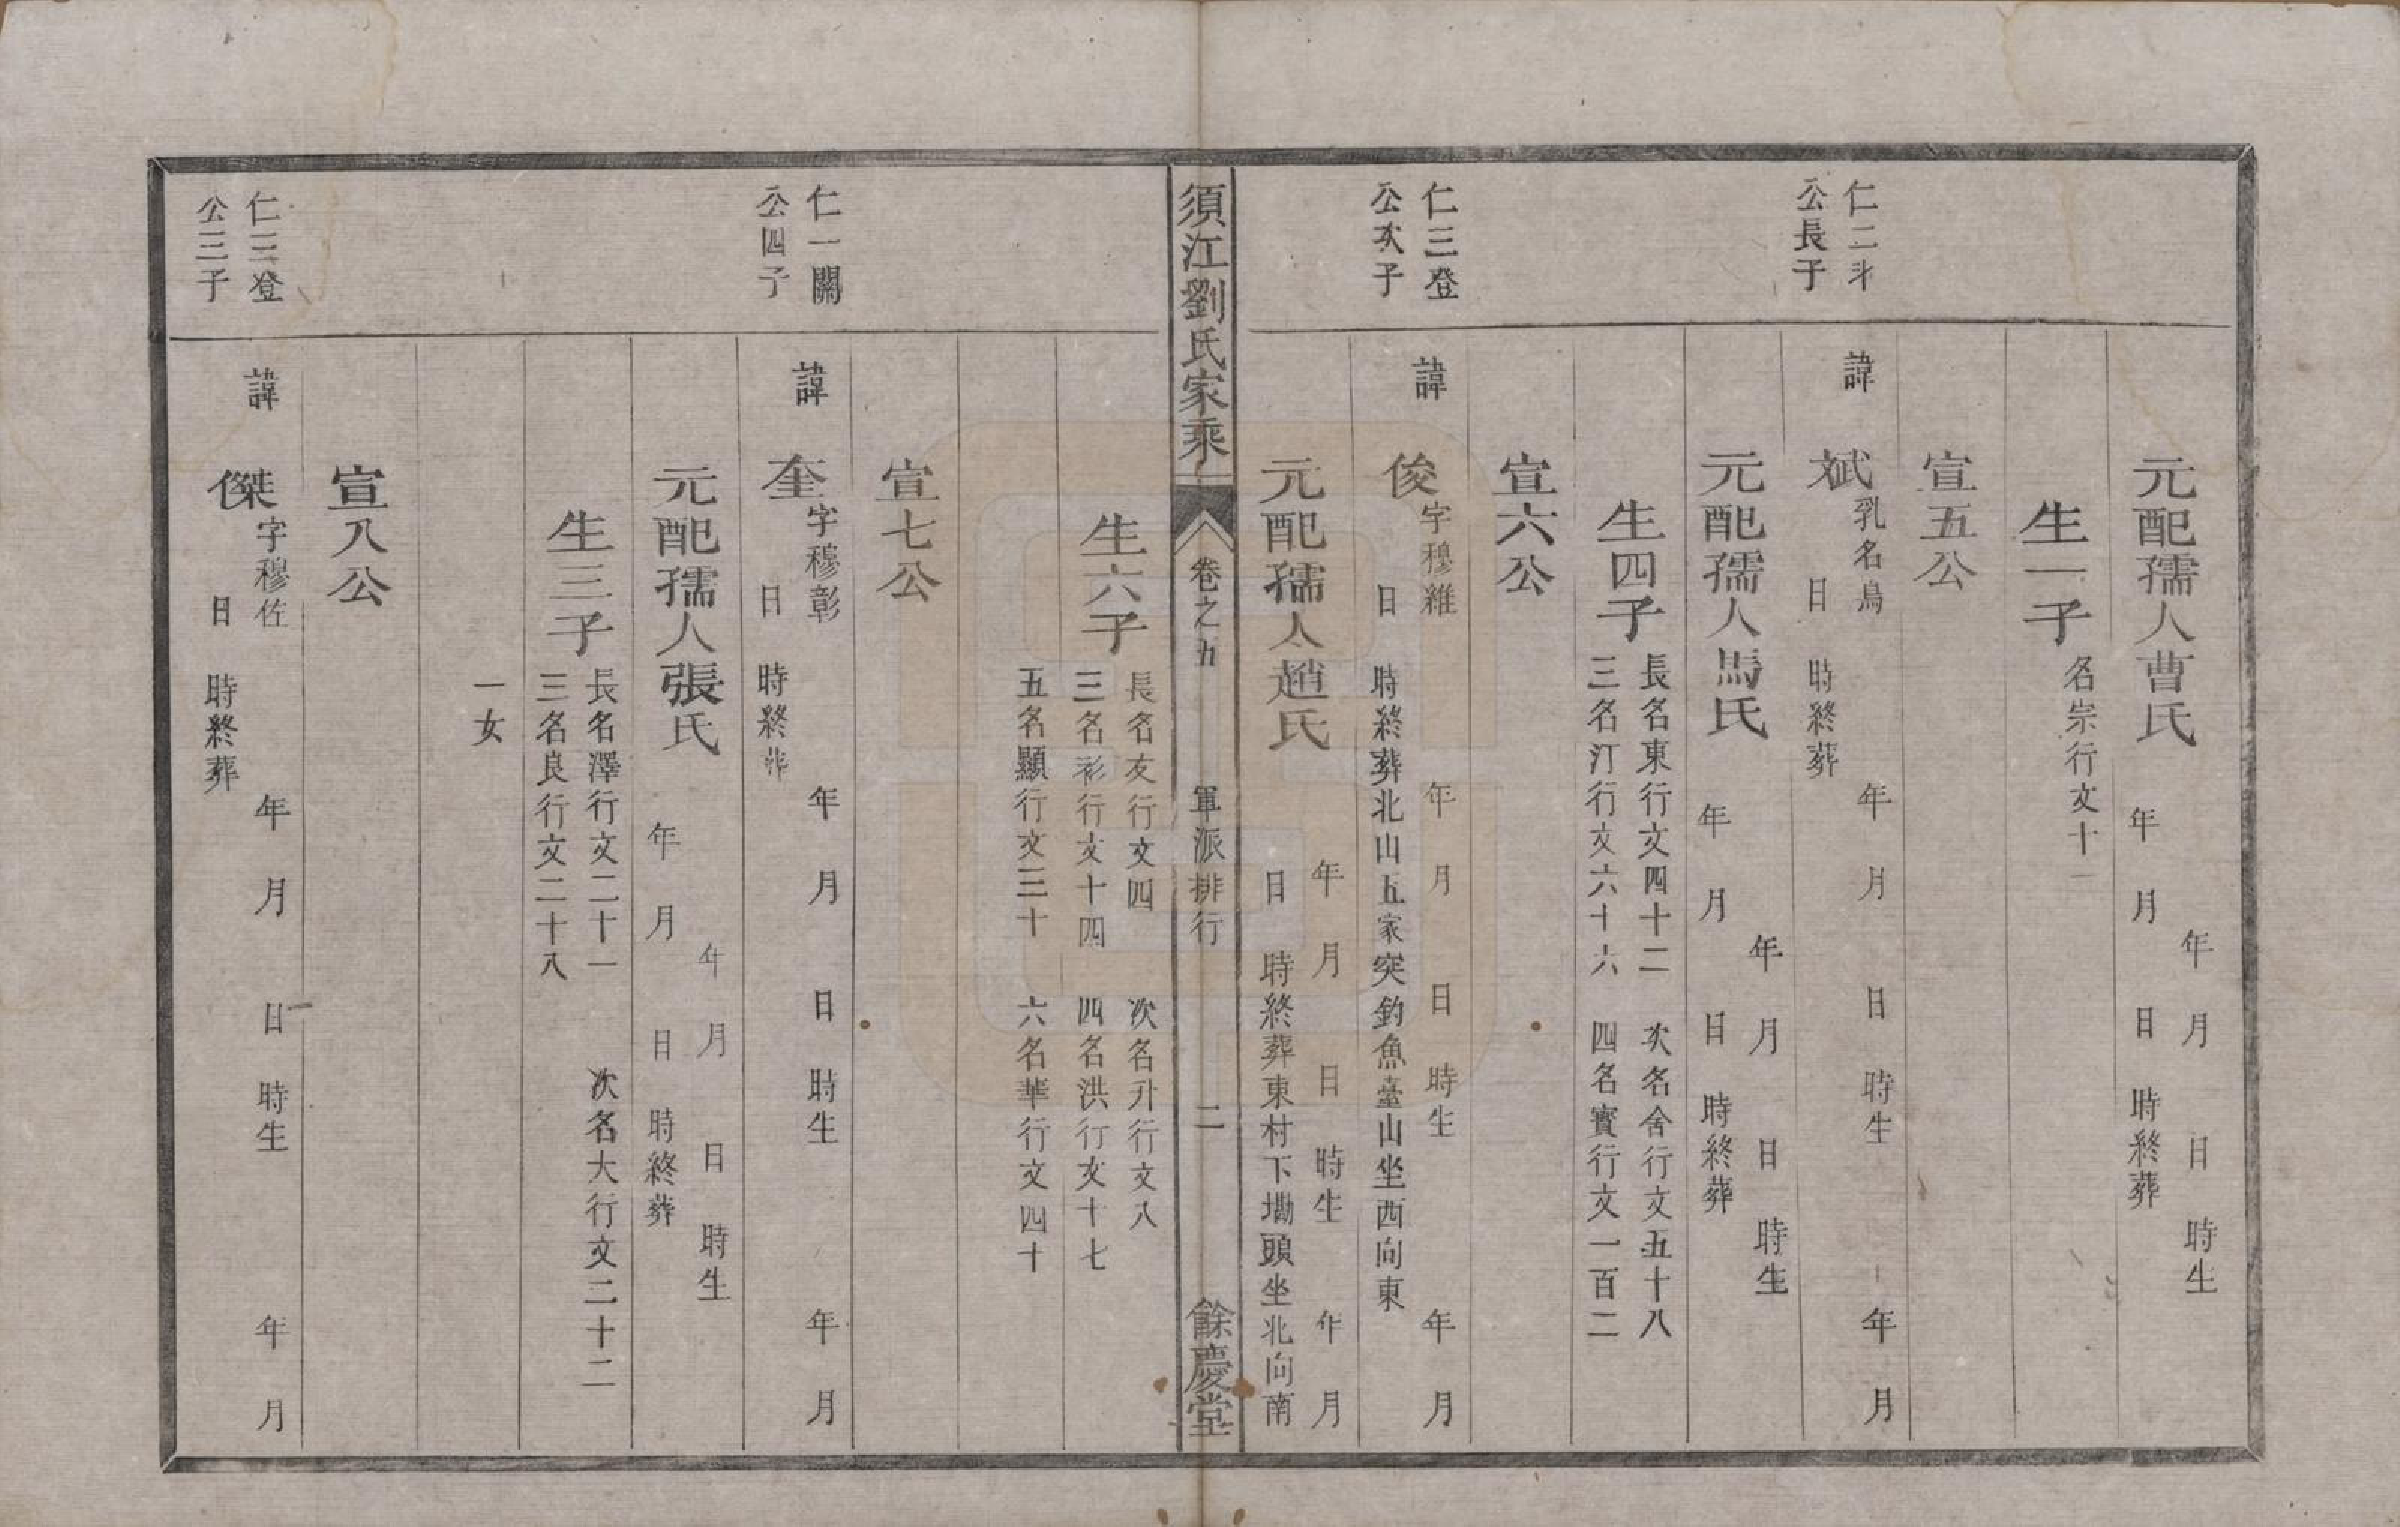 元配孺人曹氏 年 月 日 時生
年 月 日 時終葬
生一子 名宗行文十一
宣五公
仁二斗
公長子
諱 斌 乳名鳥 年 月 日 時生 年 月
日 時終葬
元配孺人馬氏 年 月 日 時生
年 月 日 時終葬
生四子 長名東行文四十二 次名舍行文五十八
三名汀行文六十六 四名實行文一百二
宣六公
仁三登
公次子
諱 俊 字穆雜 年 月 日 時生 年 月
日 時終葬北山五家突釣魚臺山坐西向東
元配孺人趙氏 年 月 日 時生 年 月
日 時終葬東村下塘頭坐北向南
須江劉氏家乘 卷之五 軍派排行 二 餘慶堂
生六子 長名友行文四 次名升行文八
三名彩行文十四 四名洪行文十七
五名顯行文三十 六名華行文四十
宣七公
仁一關
公四子
諱 奎 字穆彰 年 月 日 時生 年 月
日 時終葬
元配孺人張氏 年 月 日 時生
年 月 日 時終葬
生三子 長名澤行文二十一 次名大行文二十二
三名良行文二十八
一女
宣八公
仁三登
公三子
諱 傑 字穆佐 年 月 日 時生 年 月
日 時終葬